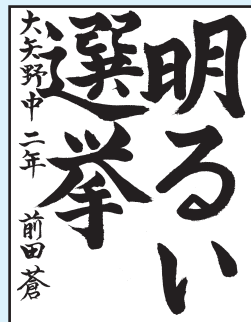 明るい
選挙
大矢野中 二年 前田 蒼